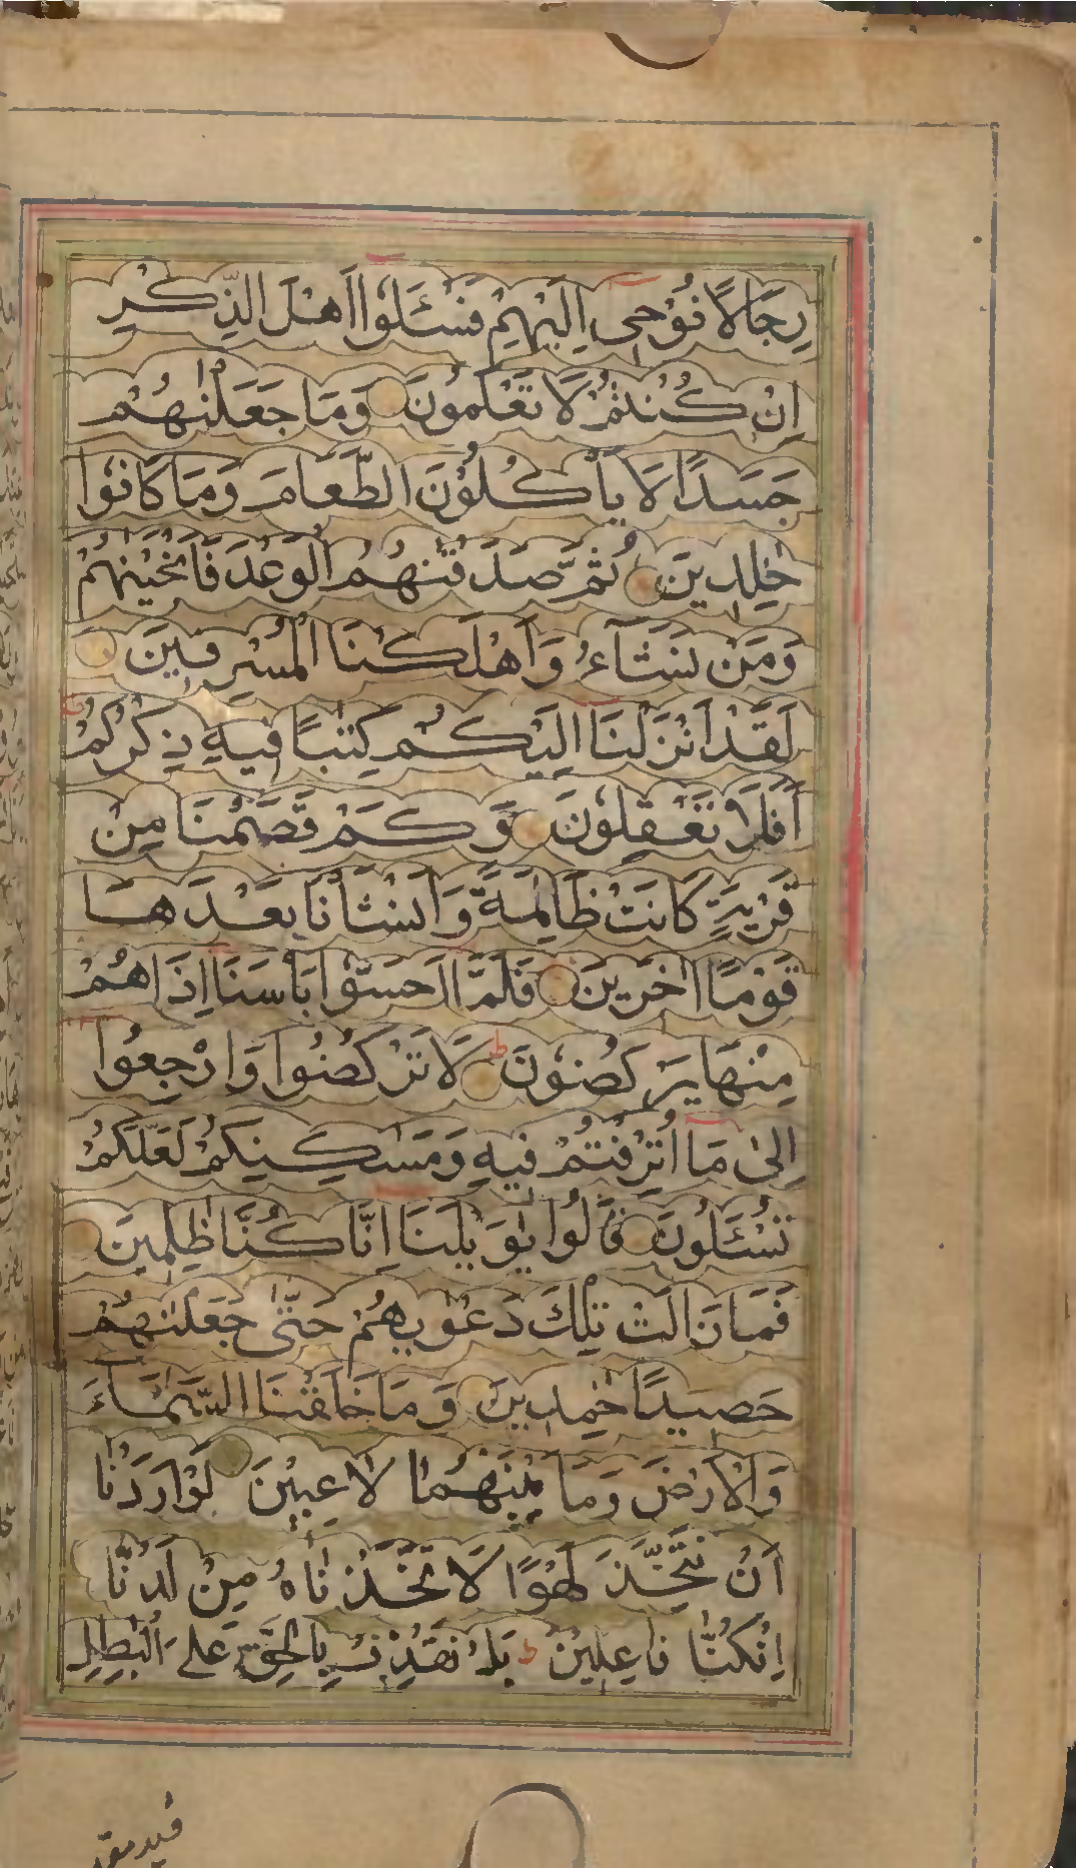 رِجَالًا نُوْحِىْ اِلَيْهِمْ فَسْـَٔلُوْا اَهْلَ الذِّكْرِ
اِنْ كُنْتُمْ لَا تَعْلَمُوْنَ وَمَا جَعَلْنٰهُمْ
جَسَدًا لَا يَأْكُلُوْنَ الطَّعَامَ وَمَا كَانُوْا
خٰلِدِيْنَ ثُمَّ صَدَقْنٰهُمُ الْوَعْدَ فَاَنْجَيْنٰهُمْ
وَمَنْ نَشَآءُ وَاَهْلَكْنَا الْمُسْرِفِيْنَ
لَقَدْ اَنْزَلْنَا اِلَيْكُمْ كِتٰبًا فِيْهِ ذِكْرُكُمْ
اَفَلَا تَعْقِلُوْنَ وَكَمْ قَصَمْنَا مِنْ
قَرْيَةٍ كَانَتْ ظَالِمَةً وَاَنْشَأْنَا بَعْدَهَا
قَوْمًا اٰخَرِيْنَ فَلَمَّا اَحَسُّوْا بَأْسَنَا اِذَا هُمْ
مِنْهَا يَرْكُضُوْنَ لَا تَرْكُضُوْا وَارْجِعُوْا
اِلٰى مَا اُتْرِفْتُمْ فِيْهِ وَمَسٰكِنِكُمْ لَعَلَّكُمْ
تُسْـَٔلُوْنَ قَالُوْا يٰوَيْلَنَا اِنَّا كُنَّا ظٰلِمِيْنَ
فَمَا زَالَتْ تِلْكَ دَعْوٰىهُمْ حَتّٰى جَعَلْنٰهُمْ
حَصِيْدًا خٰمِدِيْنَ وَمَا خَلَقْنَا السَّمَآءَ
وَالْاَرْضَ وَمَا بَيْنَهُمَا لَاعِبِيْنَ لَوْ اَرَدْنَا
اَنْ نَتَّخِذَ لَهْوًا لَاتَّخَذْنَاهُ مِنْ لَدُنَّا
اِنْ كُنَّا فَاعِلِيْنَ بَلْ نَقْذِفُ بِالْحَقِّ عَلَى الْبٰطِلِ